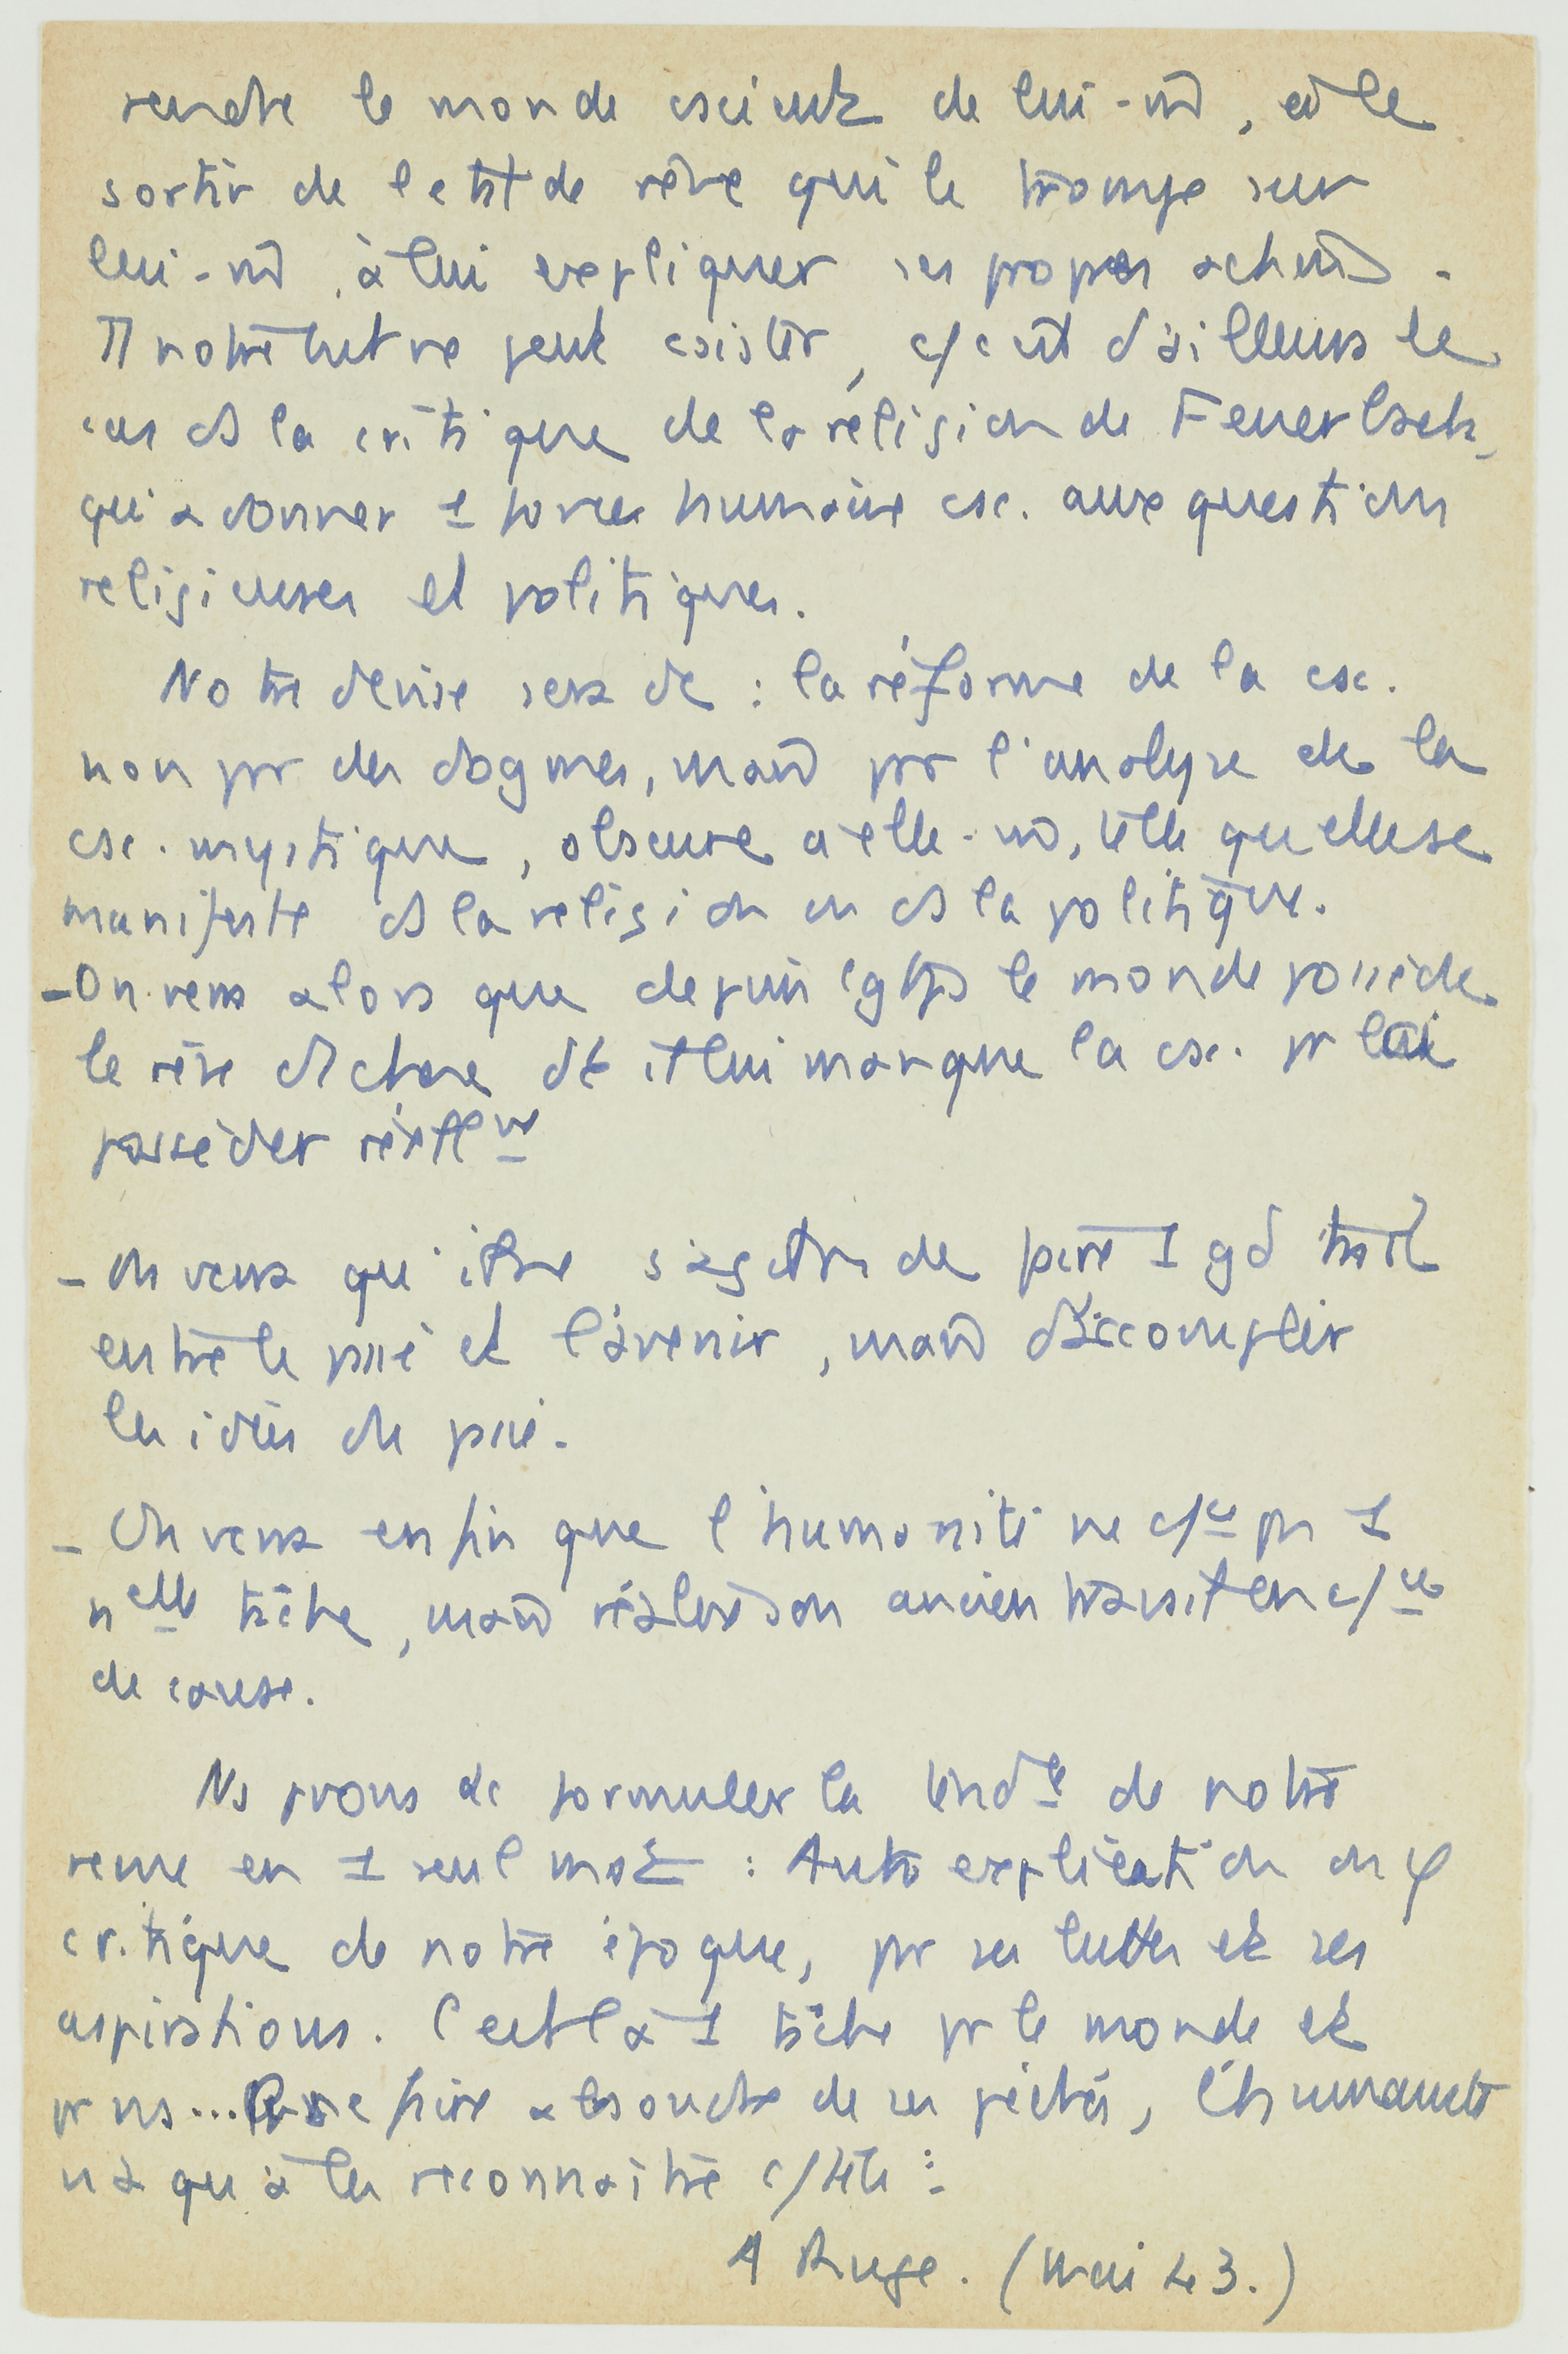 rendre le monde cscient de lui-m̂, à le
sortir de l'etat de rêve qui le trompe sur
lui-m̂, à lui expliquer ses propres
notre but ne peut csister, c/ c'est d'ailleurs le
cas ds la critique de la religion de Feuerbach,
qu'à donner 1 forme humaine csc. aux questions
religieuses et politiques.
Notre devise sera dc : la réforme de la csc.
non par des dogmes, mais par l'analyse de la
csc. mystique, obscure à elle-m̂, telle qu'elle se
manifeste ds la religion ou ds la politique.
- On verra alors que depuis lgtps le monde possède
le rêve d'1 chose dt il lui manque la csc. pr la
posséder réellmt
- On verra qu'il ne s'agit de 1 gd trait
entre le passé et l'avenir, mais d'accomplir
les idées du passé.
- On verra enfin que l'humanité ne c/ce pas 1
nelle tâche, mais réalise son ancien en c/ce
de cause.
Ns pvons dc formuler la tendce de notre
revue en 1 seul mot : Auto explication ou φ
critique de notre époque, par ses luttes et ses
aspirations. C'est là 1 tâche pr le monde et
pr ns... se faire absoudre de ses péchés, l'humanité
n'a qu'à les reconnaitre c/ tels :
A Ruge. (Mai 43.)